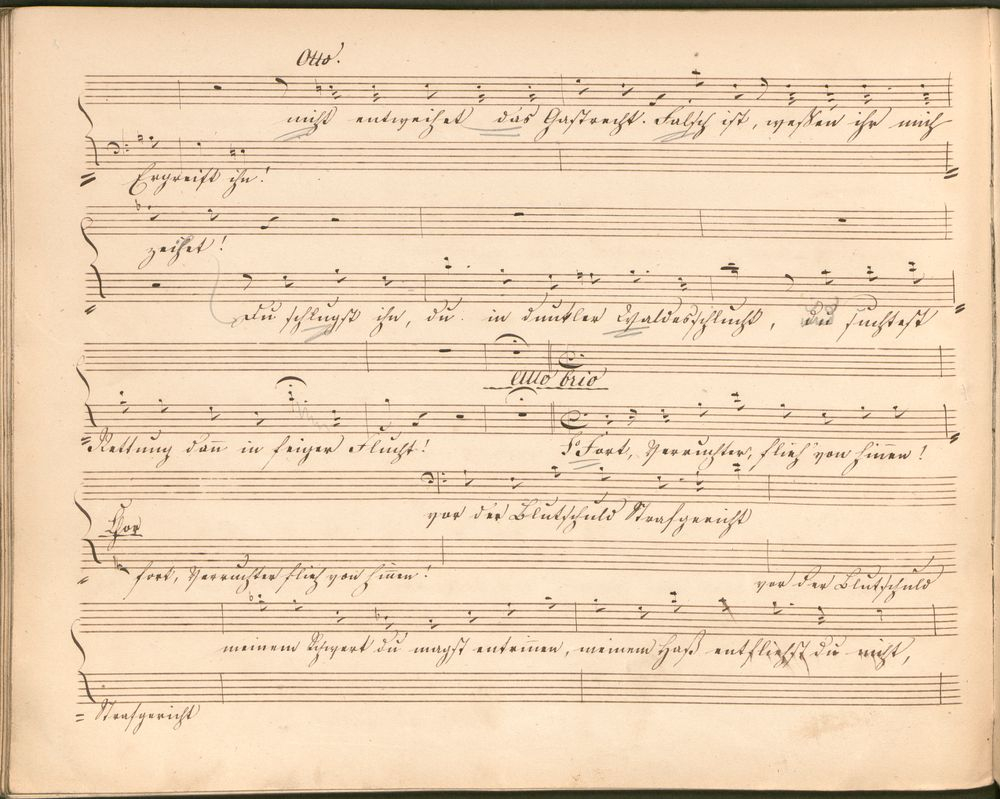 Otto.
nicht entweihet das Gastrecht. Falsch ist, wessen ihr mich
Ergreift ihn!
zeihet!
Du schlugst ihn, du in dunkler Waldesschlucht, du suchtest
Allo brio
Rettung dan̄ in feiger Flucht!
Fort, Verruchter, flieh' von hin̄en!
vor der Blutschuld Strafgericht
Chor
fort, Verruchter flieh von hin̄en!
vor der Blutschuld
meinem Schwert du magst entrin̄en, meinem Haß entfliehst du nicht,
Strafgericht